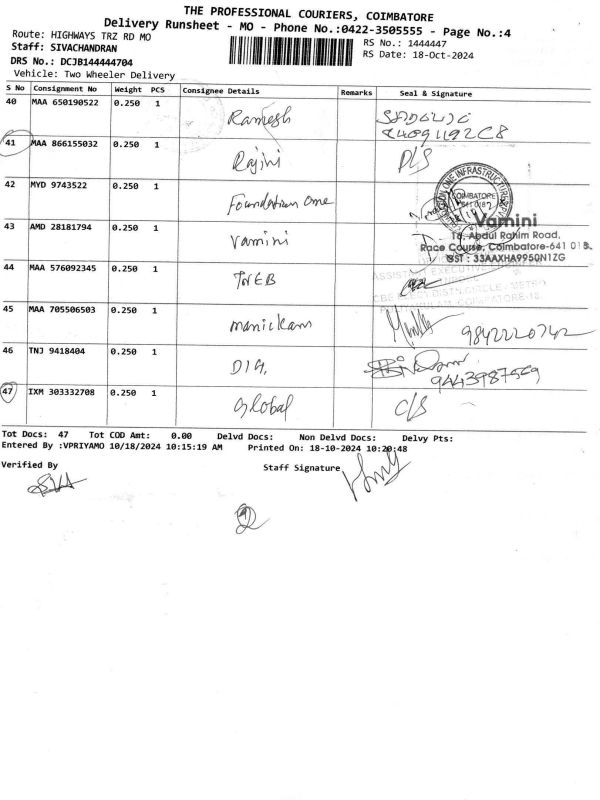 THE PROFESSIONAL COURIERS, COIMBATORE
Delivery Runsheet - MO - Phone No.:0422-3505555 - Page No.:4
Route: HIGHWAYS TRZ RD MO
RS No.: 1444447
Staff: SIVACHANDRAN
RS Date: 18-Oct-2024
DRS No.: DCJB144444704
Vehicle: Two Wheeler Delivery
S No Consignment No Weight PCS Consignee Details Remarks Seal & Signature
40 MAA 650190522 0.250 1 Ramesh
41 MAA 866155032 0.250 1 Rajini DLS
42 MYD 9743522 0.250 1 Foundation one
43 AMD 28181794 0.250 1 Vamini
Vamini
18, Abdul Rahim Road,
Race Course, Coimbatore-641 018.
GST : 33AAXHA9950N1ZG
44 MAA 576092345 0.250 1 TNEB
45 MAA 705506503 0.250 1 manickam 9842220742
46 TNJ 9418404 0.250 1 DIG. 9443987569
47 IXM 303332708 0.250 1 Global C/S
Tot Docs: 47 Tot COD Amt: 0.00 Delvd Docs: Non Delvd Docs: Delvy Pts:
Entered By :VPRIYAMO 10/18/2024 10:15:19 AM Printed On: 18-10-2024 10:20:48
Verified By Staff Signature